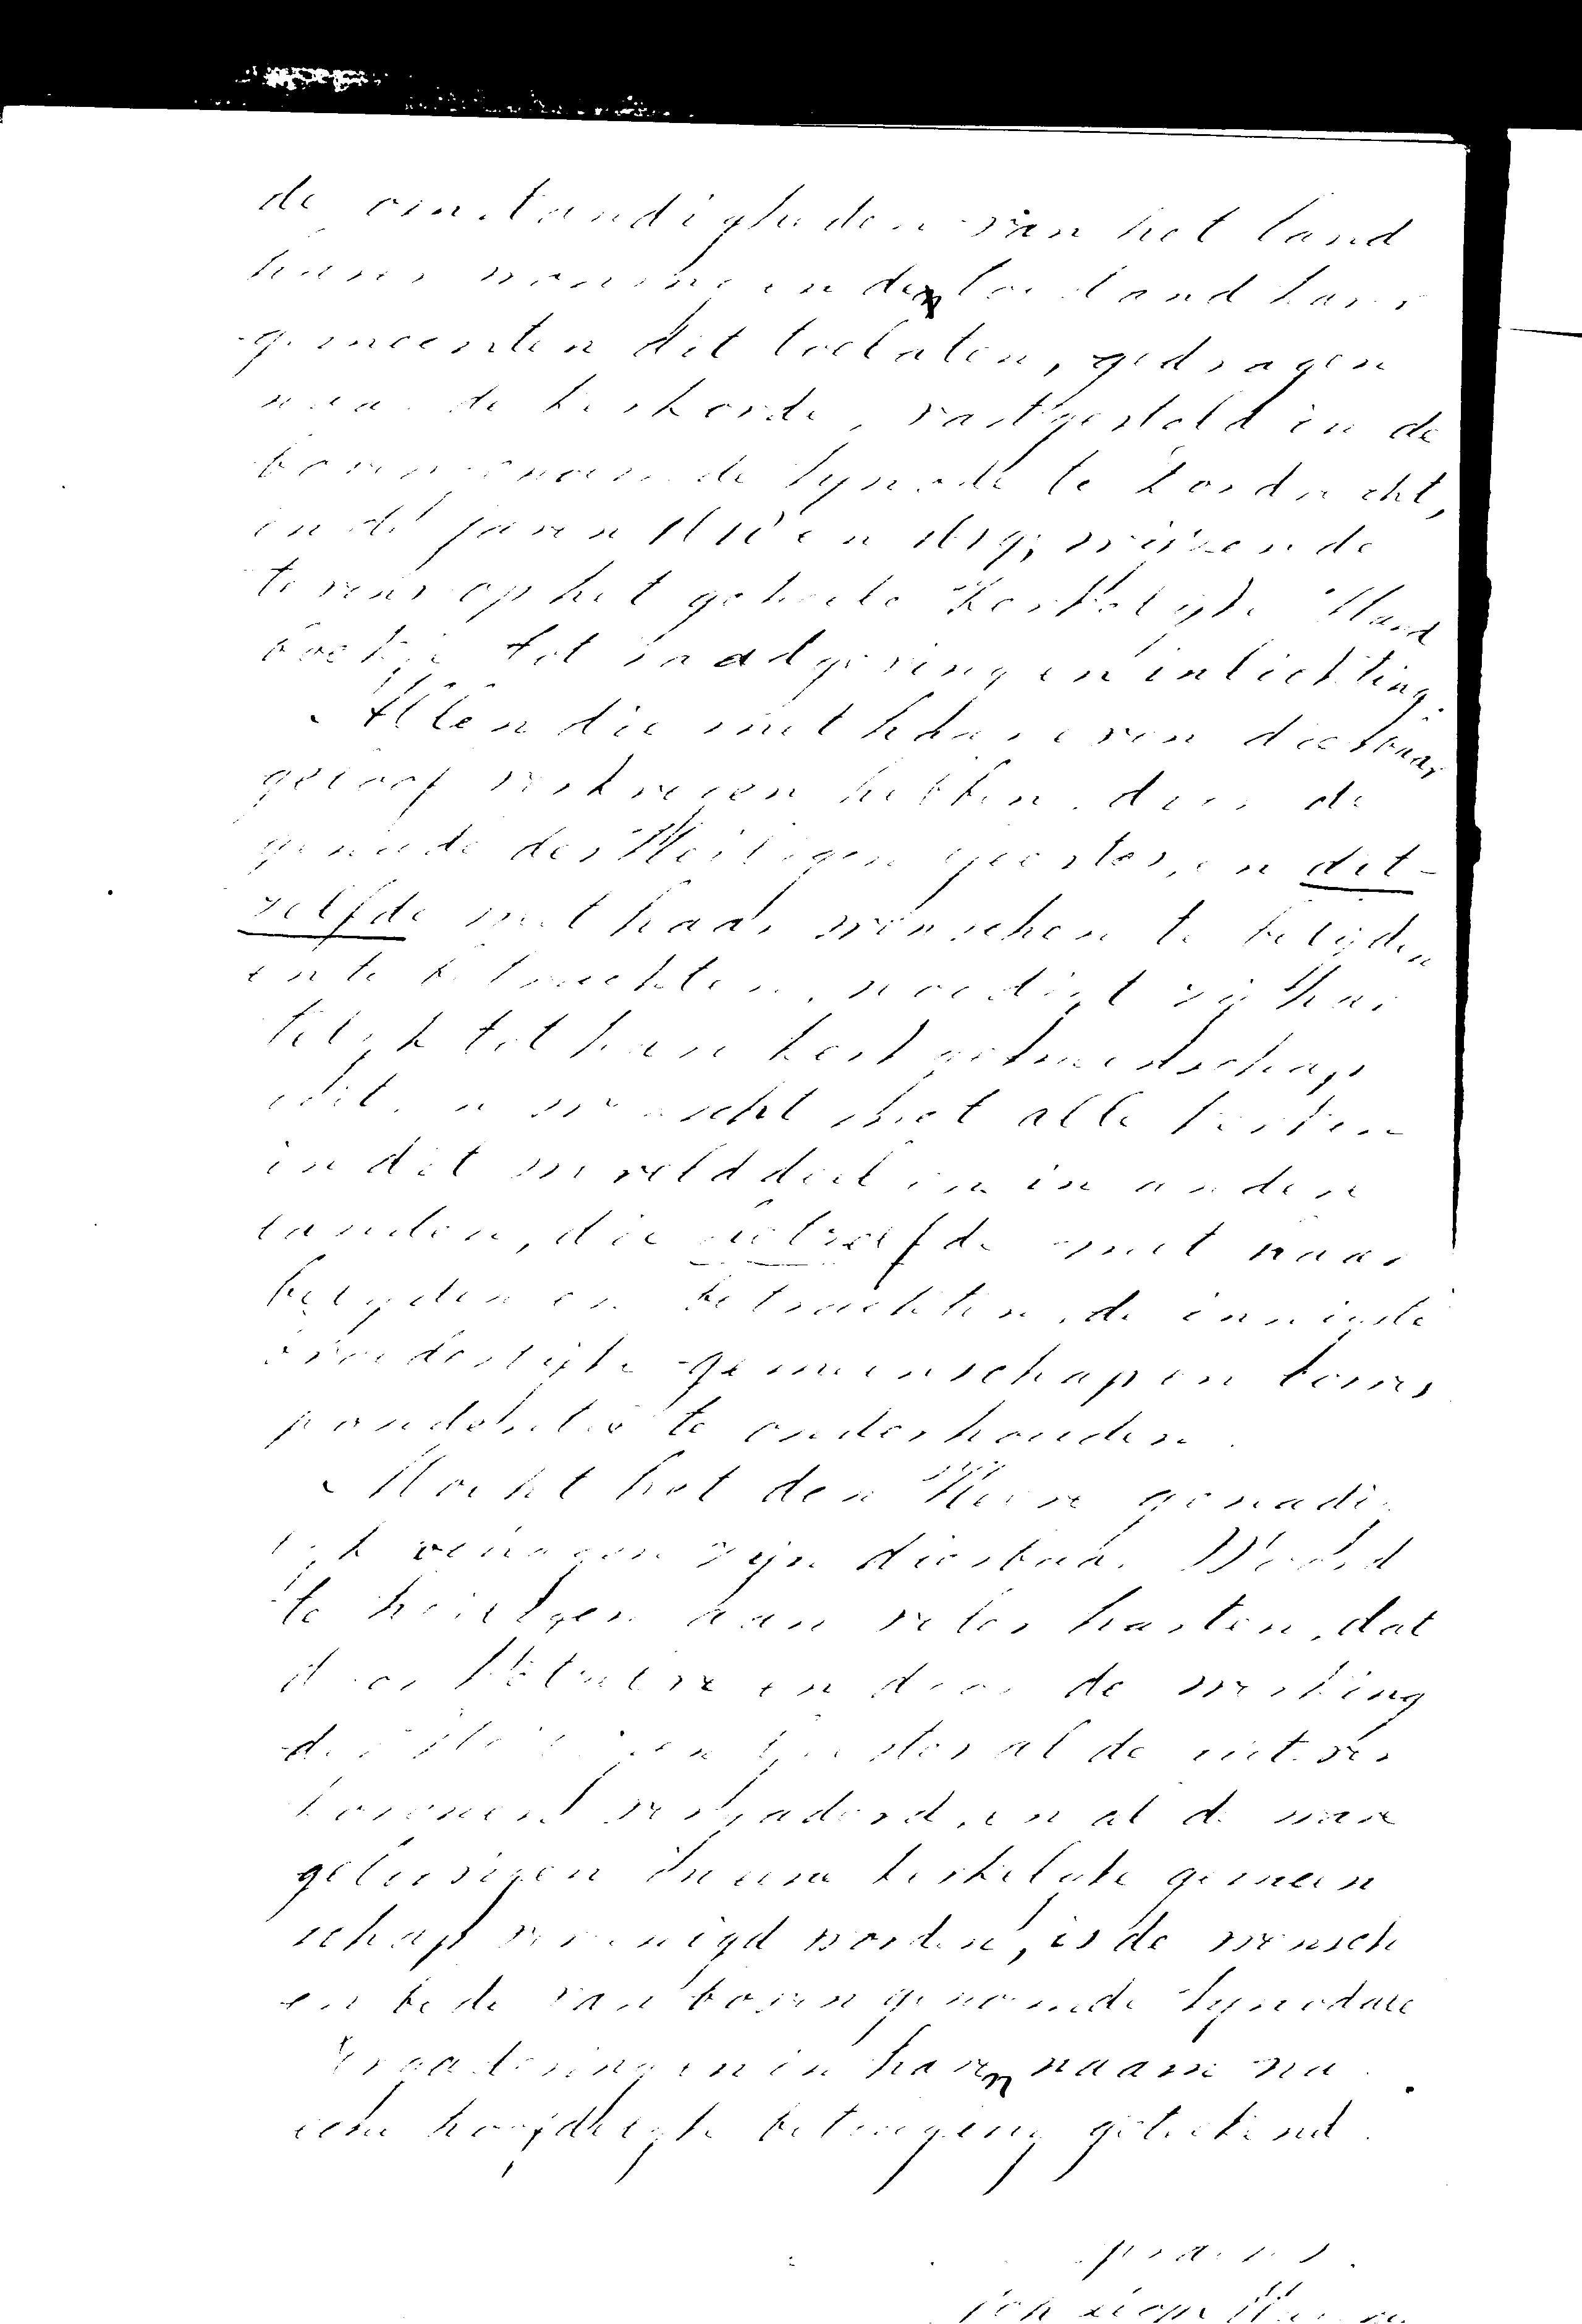 de omstandigheden van het land
harer woninge en den toestand harer
gemeenten dit toelaten, gedragen
naar de kerkorde, vastgesteld in de
bovengenoemde Synode te Dordrecht,
in de jaren 1618 en 1619; wijzende
tevens op het geheele Kerkelijke Hand
boekje tot raadgeving en inlichting.
Allen die met haar even dierbaar
geloof verkregen hebben, door de
genade des Heiligen Geestes, en dit-
zelfde met haar wenschen te belijden
en te betrachten, noodigt zij har
telijk tot hare kerkgemeenschap
uit, en wenscht met alle kerken
in dit werelddeel en in andere
landen, die hetzelfde met haar
belijden en betrachten, de innigste
broederlijke gemeenschap en corres
pondentie te onderhouden.
Mocht het den Heere genadig
lijk behagen zijn dierbaar Woord
te heiligen aan veler harten, dat
door hetzelve en door de werking
des Heiligen Geestes al de uitver
korenen vergaderd, en al de ware
geloovigen in eene kerkelijke gemeen
schap vereenigd worden, is de wensch
en bede van bovengenoemde Synodale
Vergadering en in haren naam na
eene hoofdelijke betuiging geteekend.
praeses.